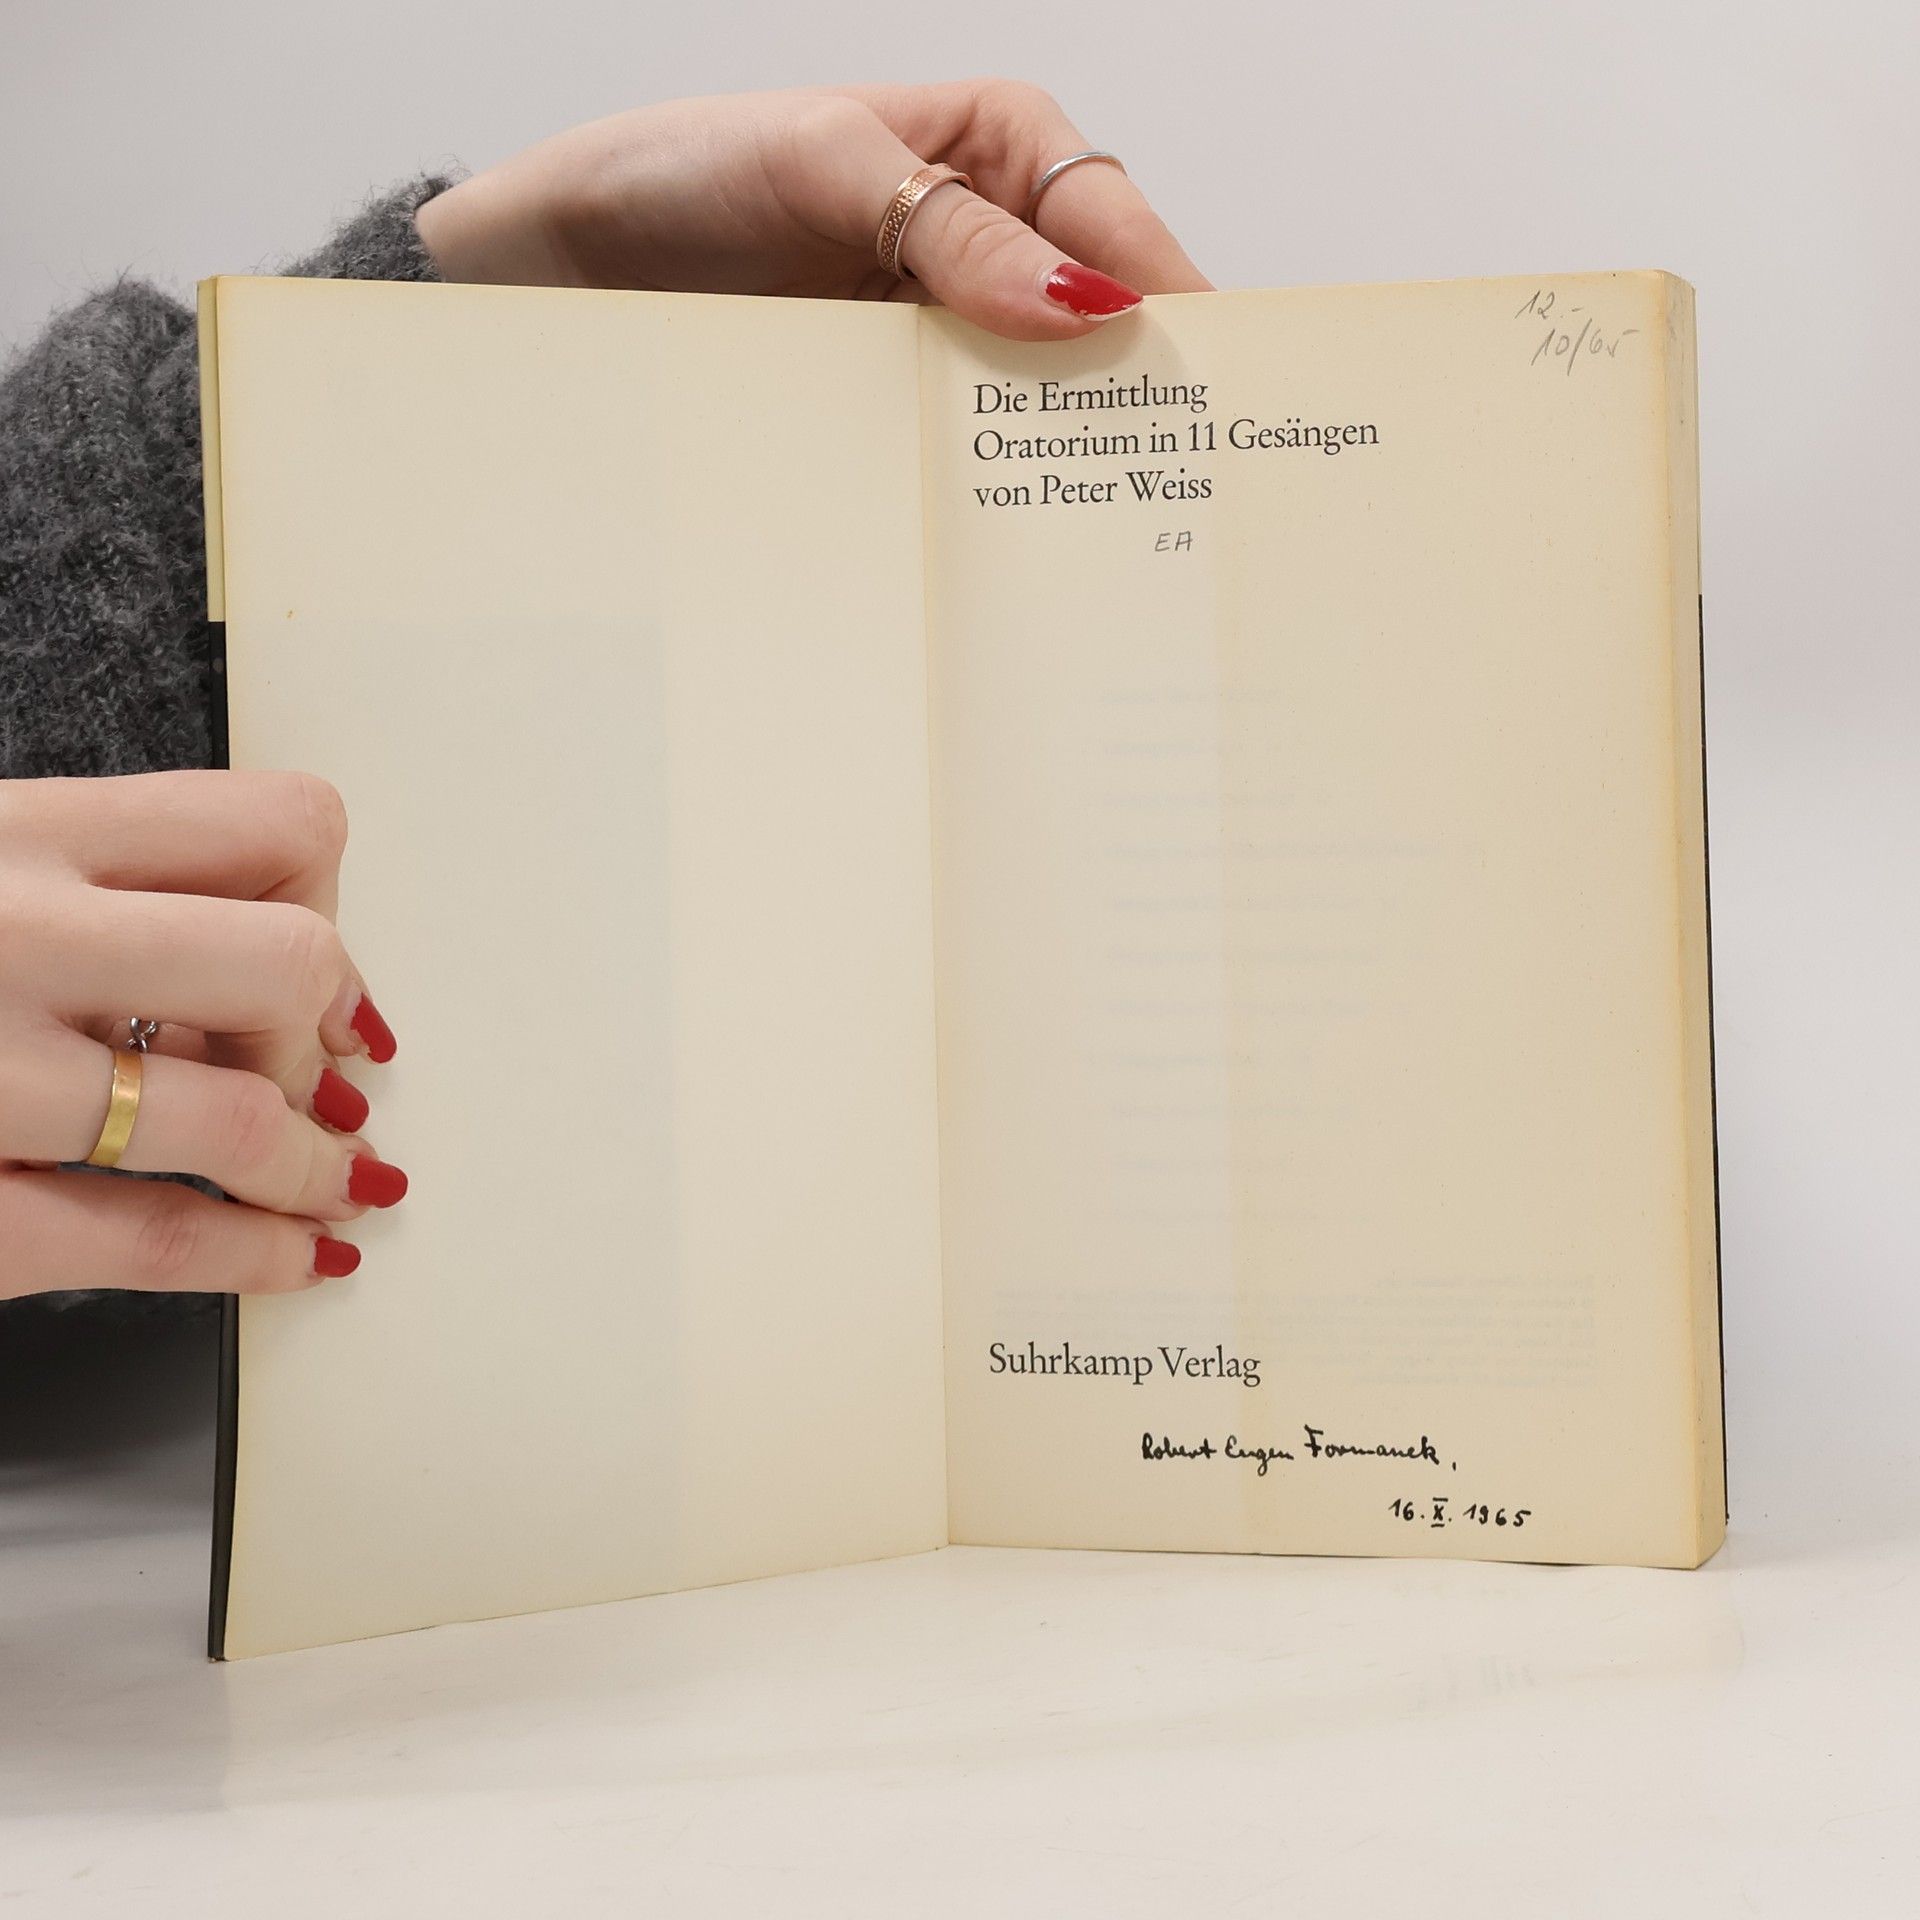 12.-
10/65
Die Ermittlung
Oratorium in 11 Gesängen
von Peter Weiss
EA
Suhrkamp Verlag
Robert Eugen Formanek,
16. X. 1965